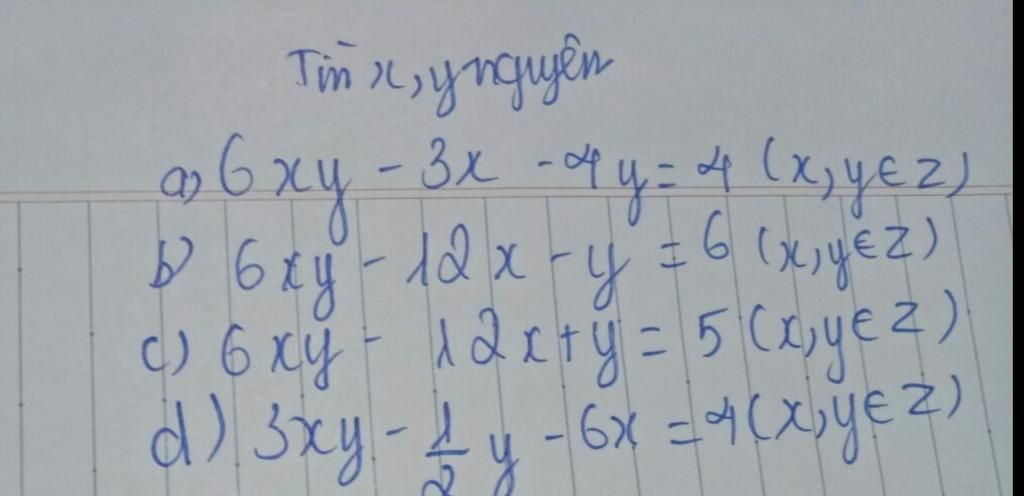 Tìm x, y nguyên
a) 6xy - 3x - 4y = 4 (x, y ∈ Z)
b) 6xy - 12x - y = 6 (x, y ∈ Z)
c) 6xy - 12x + y = 5 (x, y ∈ Z)
d) 3xy - 1/2 y - 6x = 4 (x, y ∈ Z)